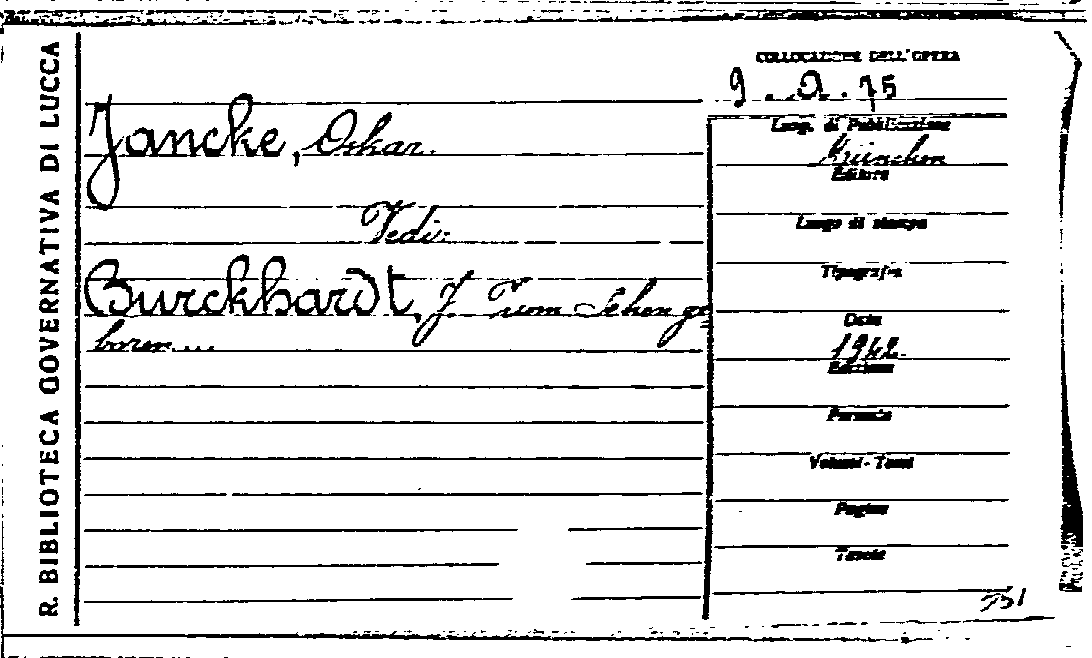 R. BIBLIOTECA GOVERNATIVA DI LUCCA
COLLOCAZIONE DELL'OPERA
9. a. 75
Jancke, Oskar.
Vedi:
Burckhardt, J. Zum Sehen ge=
boren...
Luog. di Pubblicazione
München
Editore
Luogo di stampa
Tipografia
Data
1942
Edizione
Formato
Volumi - Tomi
Pagine
Tavole